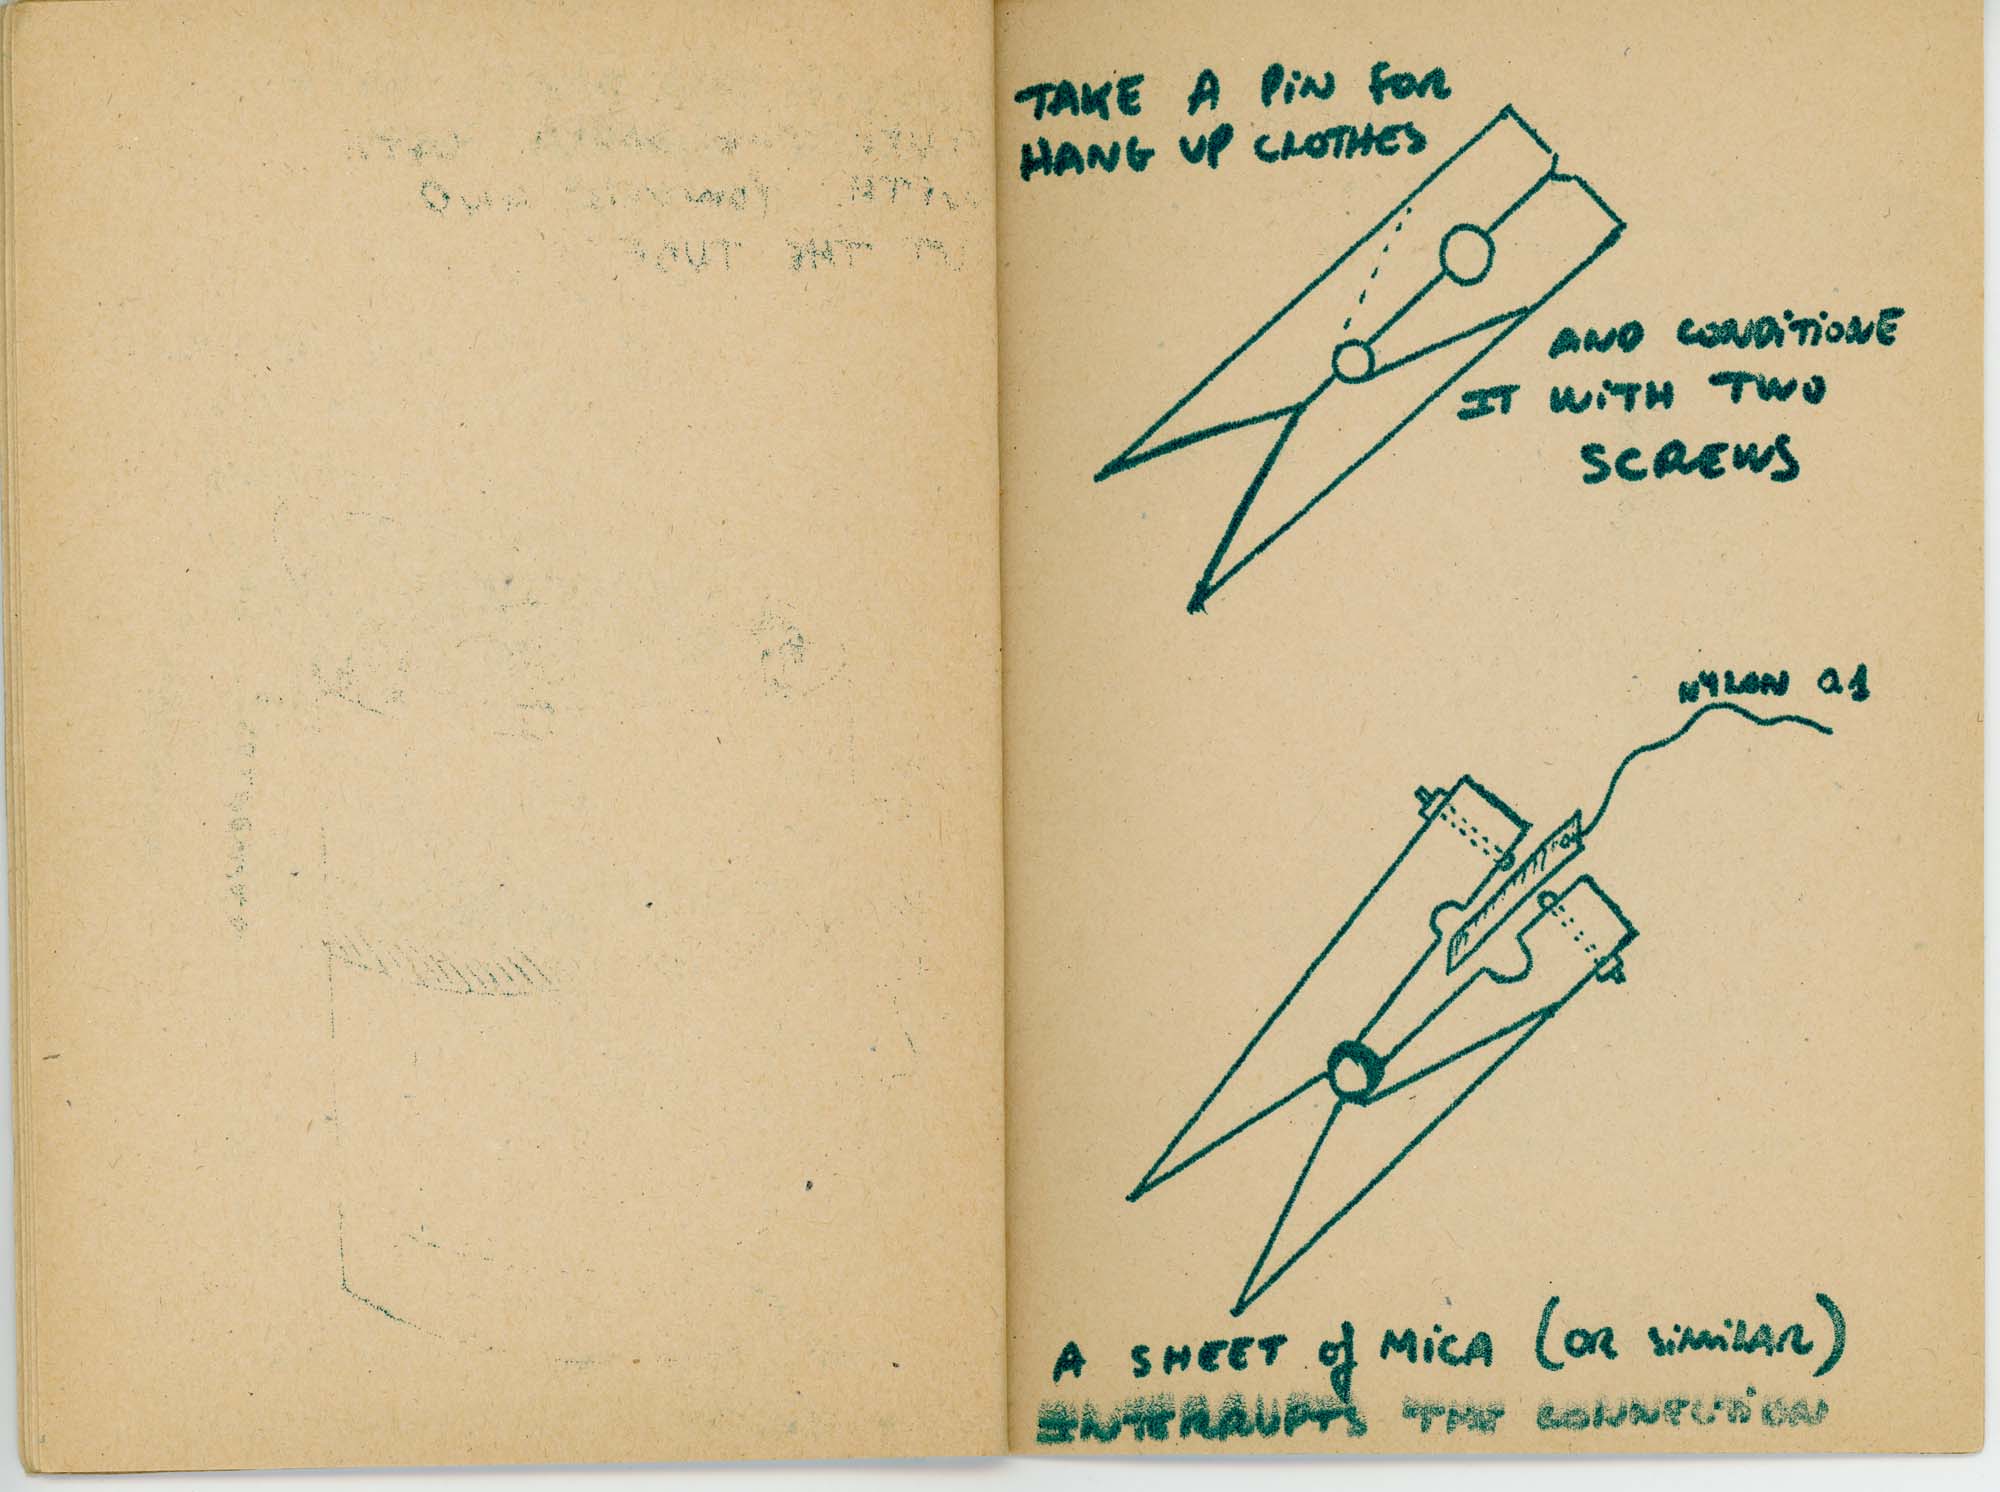 TAKE A PiN FOR
HANG UP CLOTHES
AND CONDiTiONE
IT WiTH TWO
SCREWS
NYLON 0.1
A SHEET of MiCA (OR SiMiLAR)
INTERRUPTS THE CONNECTiON